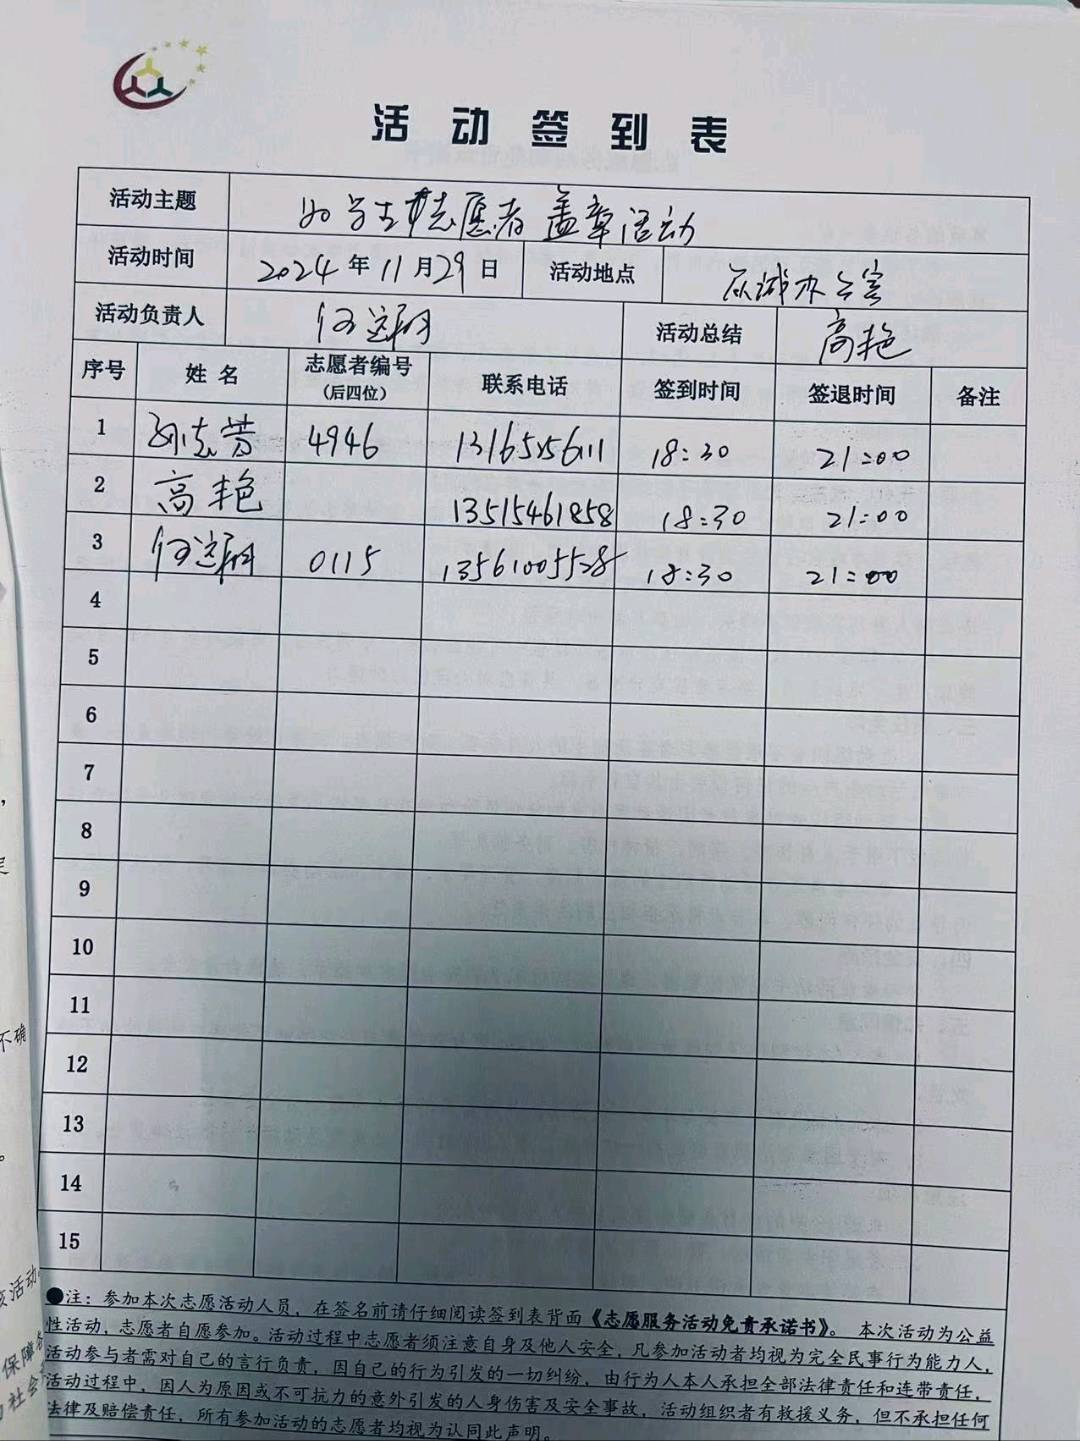 活动签到表
活动主题 志愿者盖章活动
活动时间 2024年11月29日 活动地点 办公室
活动负责人 活动总结 高艳
序号 姓名 志愿者编号（后四位） 联系电话 签到时间 签退时间 备注
1 孙志芳 4946 18:30 21:00
2 高艳 13515461858 18:30 21:00
3 0115 13561005528 18:30 21:00
4
5
6
7
8
9
10
11
12
13
14
15
●注：参加本次志愿活动人员，在签名前请仔细阅读签到表背面《志愿服务活动免责承诺书》。本次活动为公益
性活动，志愿者自愿参加。活动过程中志愿者须注意自身及他人安全，凡参加活动者均视为完全民事行为能力人，
活动参与者需对自己的言行负责，因自己的行为引发的一切纠纷，由行为人本人承担全部法律责任和连带责任，
活动过程中，因人为原因或不可抗力的意外引发的人身伤害及安全事故，活动组织者有救援义务，但不承担任何
法律及赔偿责任，所有参加活动的志愿者均视为认同此声明。
不确
该活动
保障
社会